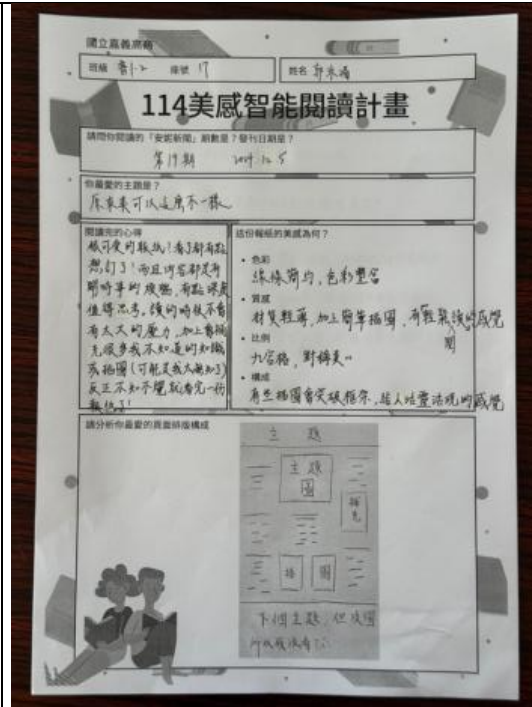 國立嘉義高商
班級 普1-2 座號 17
姓名
114美感智能閱讀計畫
請問你閱讀的「安妮新聞」期數是?發刊日期是?
第19期 12.5
你最愛的主題是?
原來美可以這麼不一樣
閱讀完的心得
蠻可愛的報紙!看了都有點
想訂了!而且內容都是有
關時事的議題,有點深度
值得思考。讀的時候不會
有太大的壓力,加上會補
充很多我不知道的知識
或插圖(可能是我太無知了)
反正不知不覺就看完一份
報紙了!
這份報紙的美感為何?
• 色彩
線條簡約,色彩豐富
• 質感
材質輕薄,加上簡單插圖,有輕鬆讀的感覺
• 比例
九宮格,對稱美
• 構成
有些插圖會突破框架,給人活靈活現的感覺
請分析你最愛的頁面排版構成
主題
主題
圖
補
充
插
圖
下個主題,但